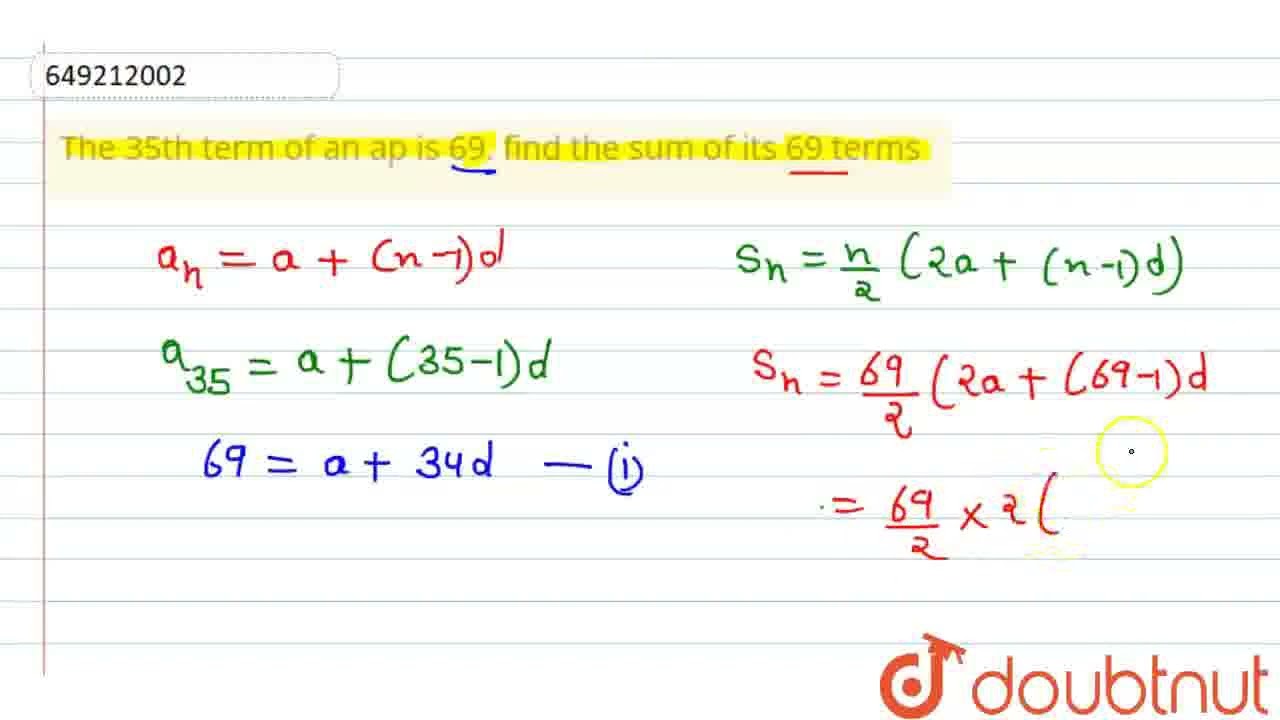 649212002
The 35th term of an ap is 69. find the sum of its 69 terms
aₙ = a + (n-1)d
a₃₅ = a + (35-1)d
69 = a + 34d — (i)
Sₙ = n/2 (2a + (n-1)d)
Sₙ = 69/2 (2a + (69-1)d
= 69/2 × 2 (
doubtnut